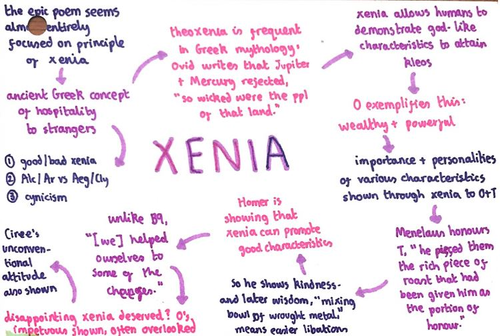 the epic poem seems
almost entirely
focused on principle
of xenia
ancient Greek concept
of hospitality
to strangers
① good/bad xenia
② Alc/Ar vs Aeg/Cly
③ cynicism
theoxenia is frequent
in Greek mythology,
Ovid writes that Jupiter
+ Mercury rejected,
"so wicked were the ppl
of that land."
xenia allows humans to
demonstrate god-like
characteristics to attain
kleos
O exemplifies this:
wealthy + powerful
importance + personalities
of various characteristics
shown through xenia to O+T
Menelaus honours
T, "he passed them
the rich piece of
roast that had
been given him as
the portion of
honour."
XENIA
So he shows kindness-
and later wisdom, "mixing
bowl of wrought metal"
means easier libations
Homer is
showing that
xenia can promote
good characteristics
unlike B9,
"[we] helped
ourselves to
some of the
cheeses."
disappointing xenia deserved? O's
impetuous shown, often overlooked
Circe's
unconven-
tional
attitude
also shown